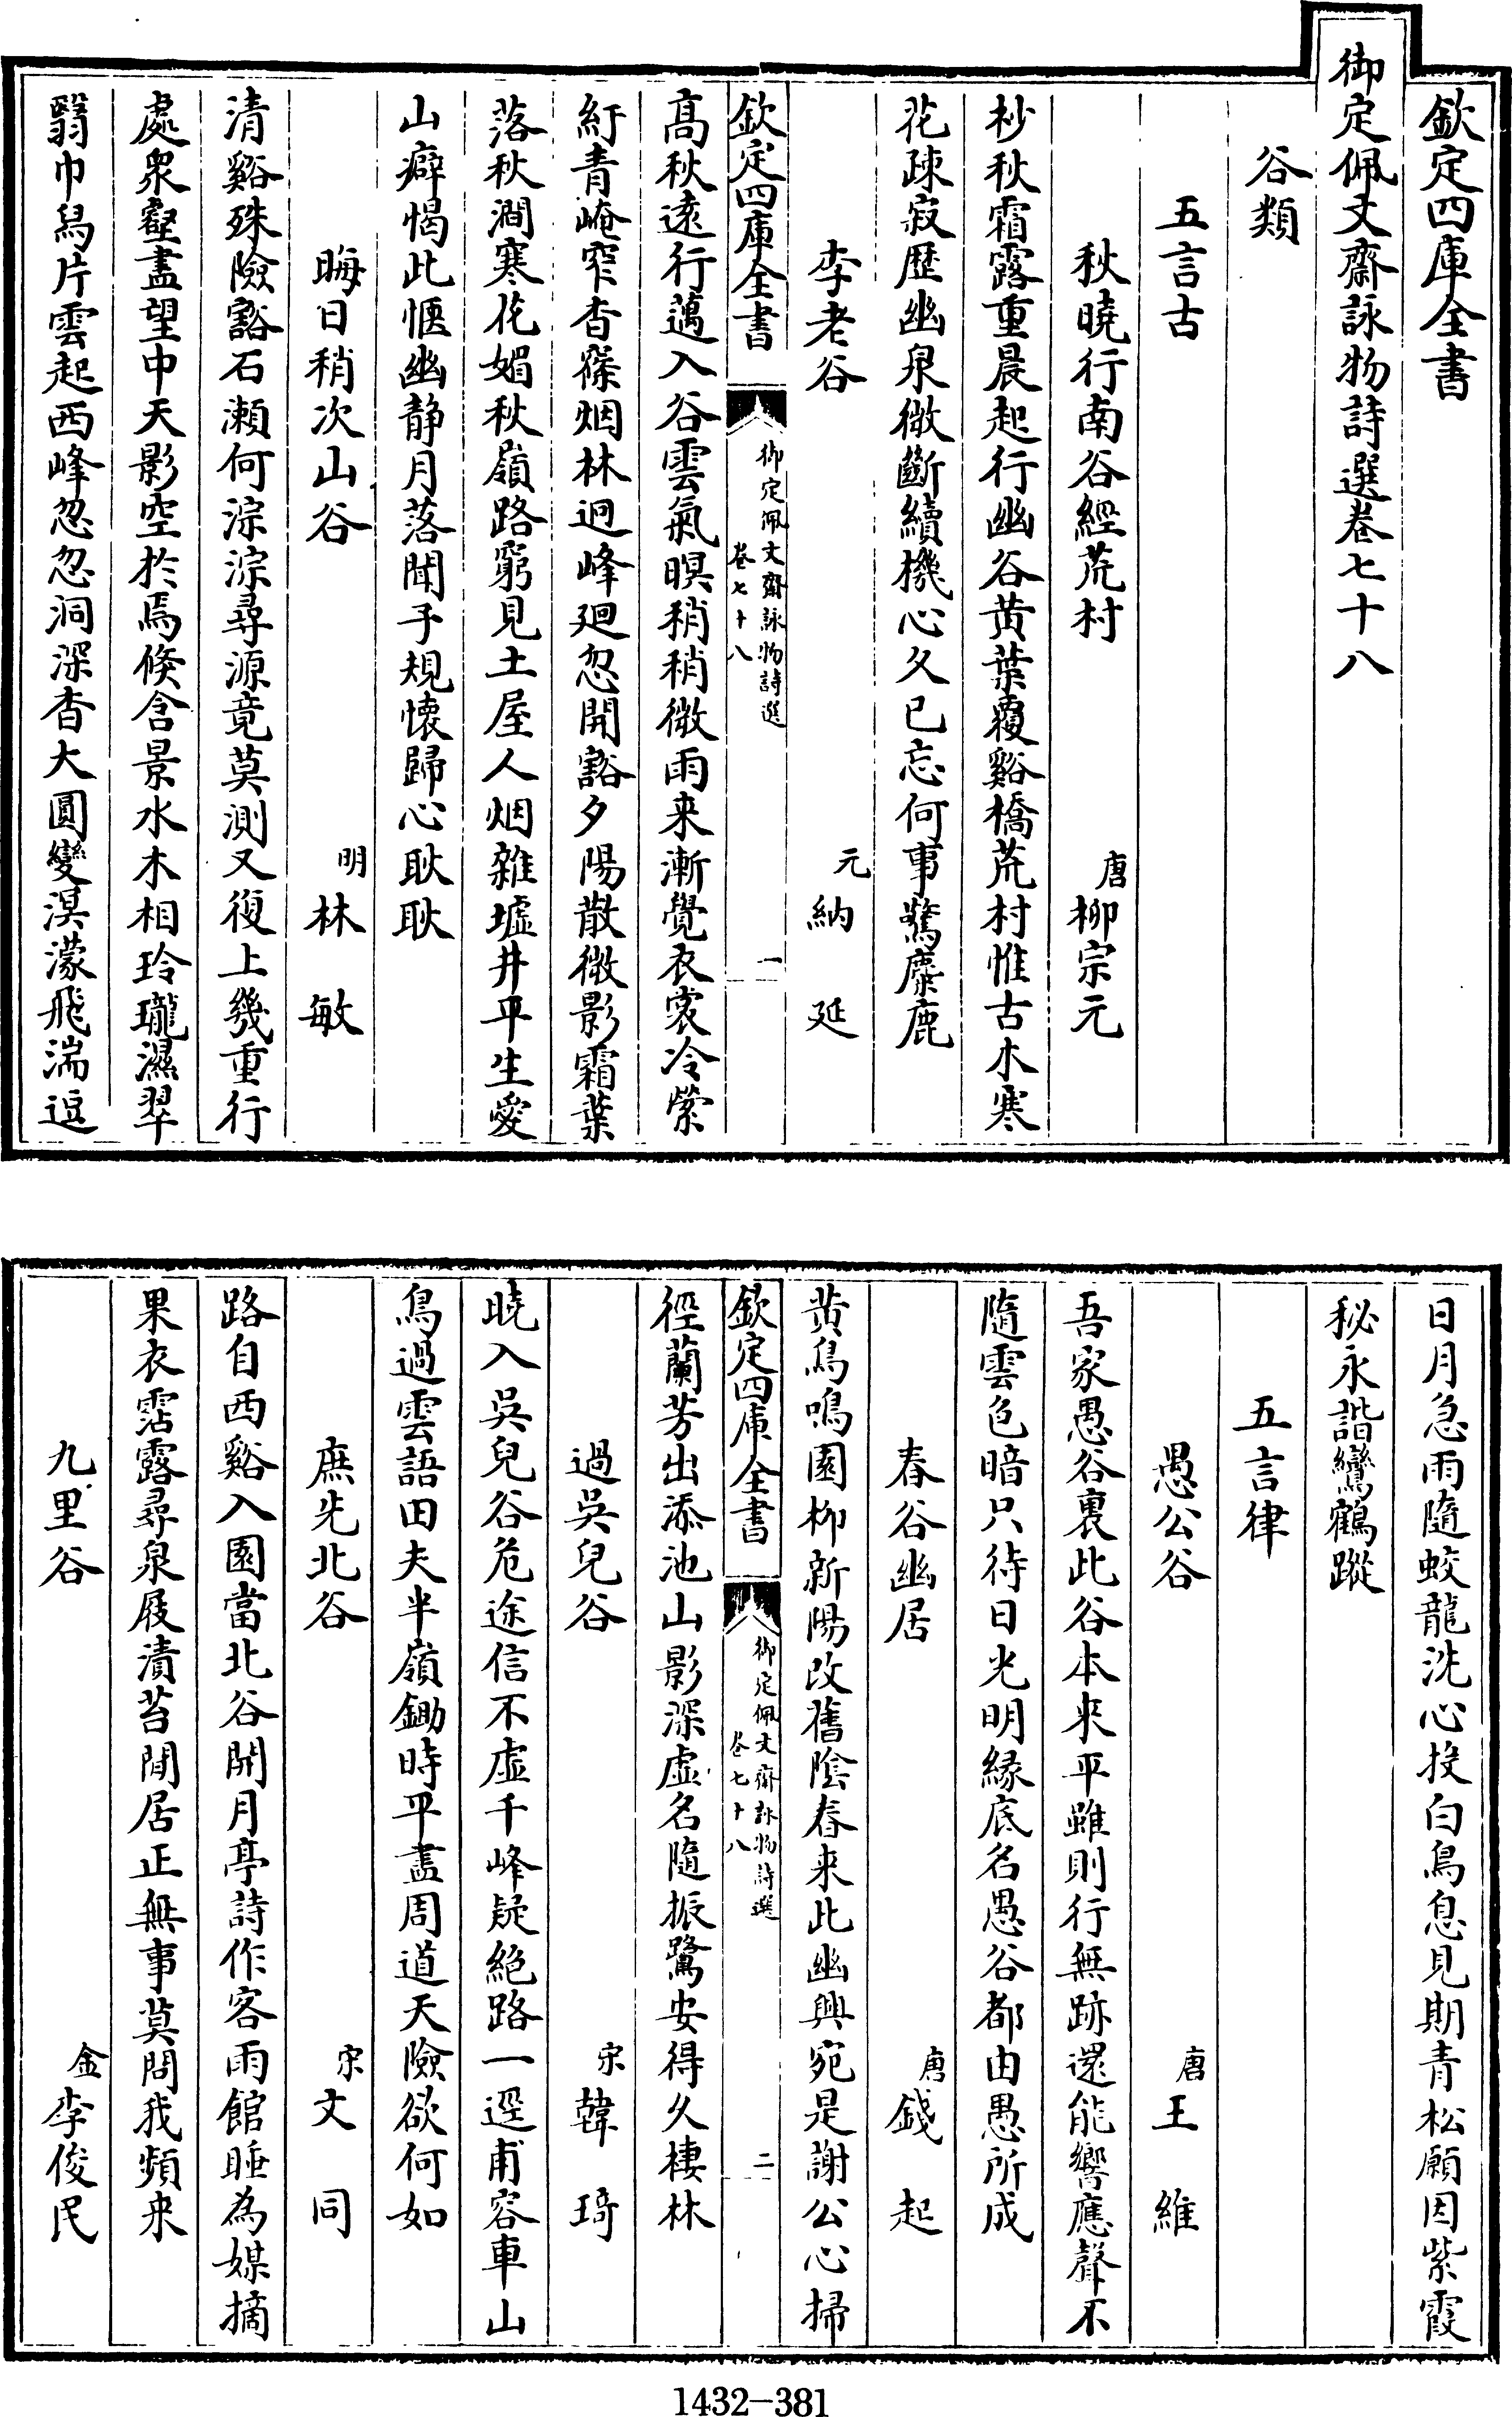 欽定四庫全書
御定佩文齋詠物詩選卷七十八
谷類
五言古
秋曉行南谷經荒村 唐 柳宗元
杪秋霜露重晨起行幽谷黃葉覆谿橋荒村惟古木寒
花疎寂歴幽泉微斷續機心久已忘何事驚麋鹿
李老谷 元 納延
欽定四庫全書 御定佩文齋詠物詩選 卷七十八 一
高秋遠行邁入谷雲氣暝稍稍微雨来漸覺衣裳冷縈
紆青崦窄杳篠烟林迥峰廻忽開豁夕陽散微影霜葉
落秋澗寒花媚秋嶺路窮見土屋人烟雜墟井平生愛
山癖愒此愜幽静月落聞子規懐歸心耿耿
晦日稍次山谷 明 林敏
清谿殊險豁石瀨何淙淙尋源竟莫測又復上幾重行
處衆壑盡望中天影空於焉倏含景水木相玲瓏濕翠
翳巾舄片雲起西峰忽忽洞深杳大圓變溟濛飛湍逗
日月急雨隨蛟龍洗心投白鳥息見期青松願因紫霞
秘永諧鸞鶴蹤
五言律
愚公谷 唐 王維
吾家愚谷裏此谷本來平雖則行無跡還能響應聲不
隨雲色暗只待日光明縁底名愚谷都由愚所成
春谷幽居 唐 錢起
黃鳥鳴園柳新陽改舊陰春来此幽興宛是謝公心掃
欽定四庫全書 御定佩文齋詠物詩選 卷七十八 二
徑蘭芳出添池山影深虚名隨振鷺安得久棲林
過吳兒谷 宋 韓琦
曉入吳兒谷危途信不虚千峰疑絶路一逕甫容車山
鳥過雲語田夫半嶺鋤時平盡周道天險欲何如
庶先北谷 宋 文同
路自西谿入園當北谷開月亭詩作客雨館睡為媒摘
果衣霑露尋泉屐漬苔閒居正無事莫問我頻来
九里谷 金 李俊民
1432-381